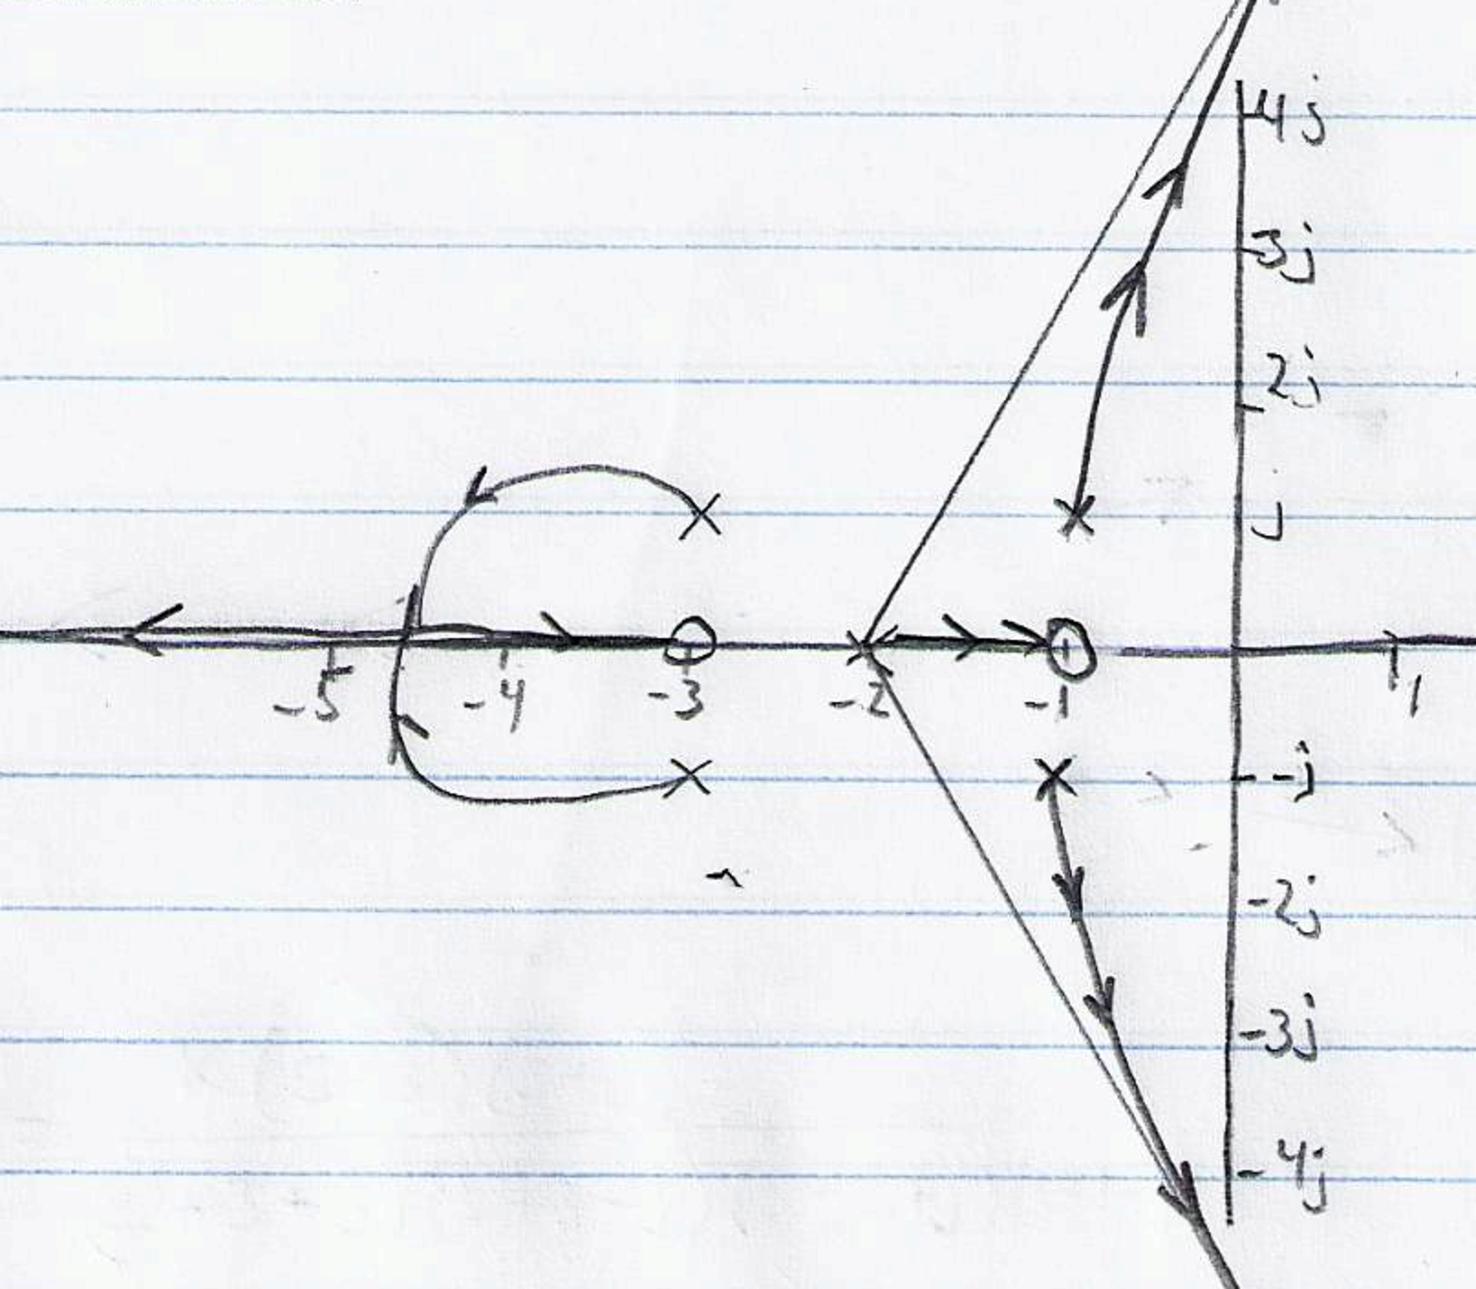 4j
3j
2j
j
-5 -4 -3 -2 -1 1
-j
-2j
-3j
-4j